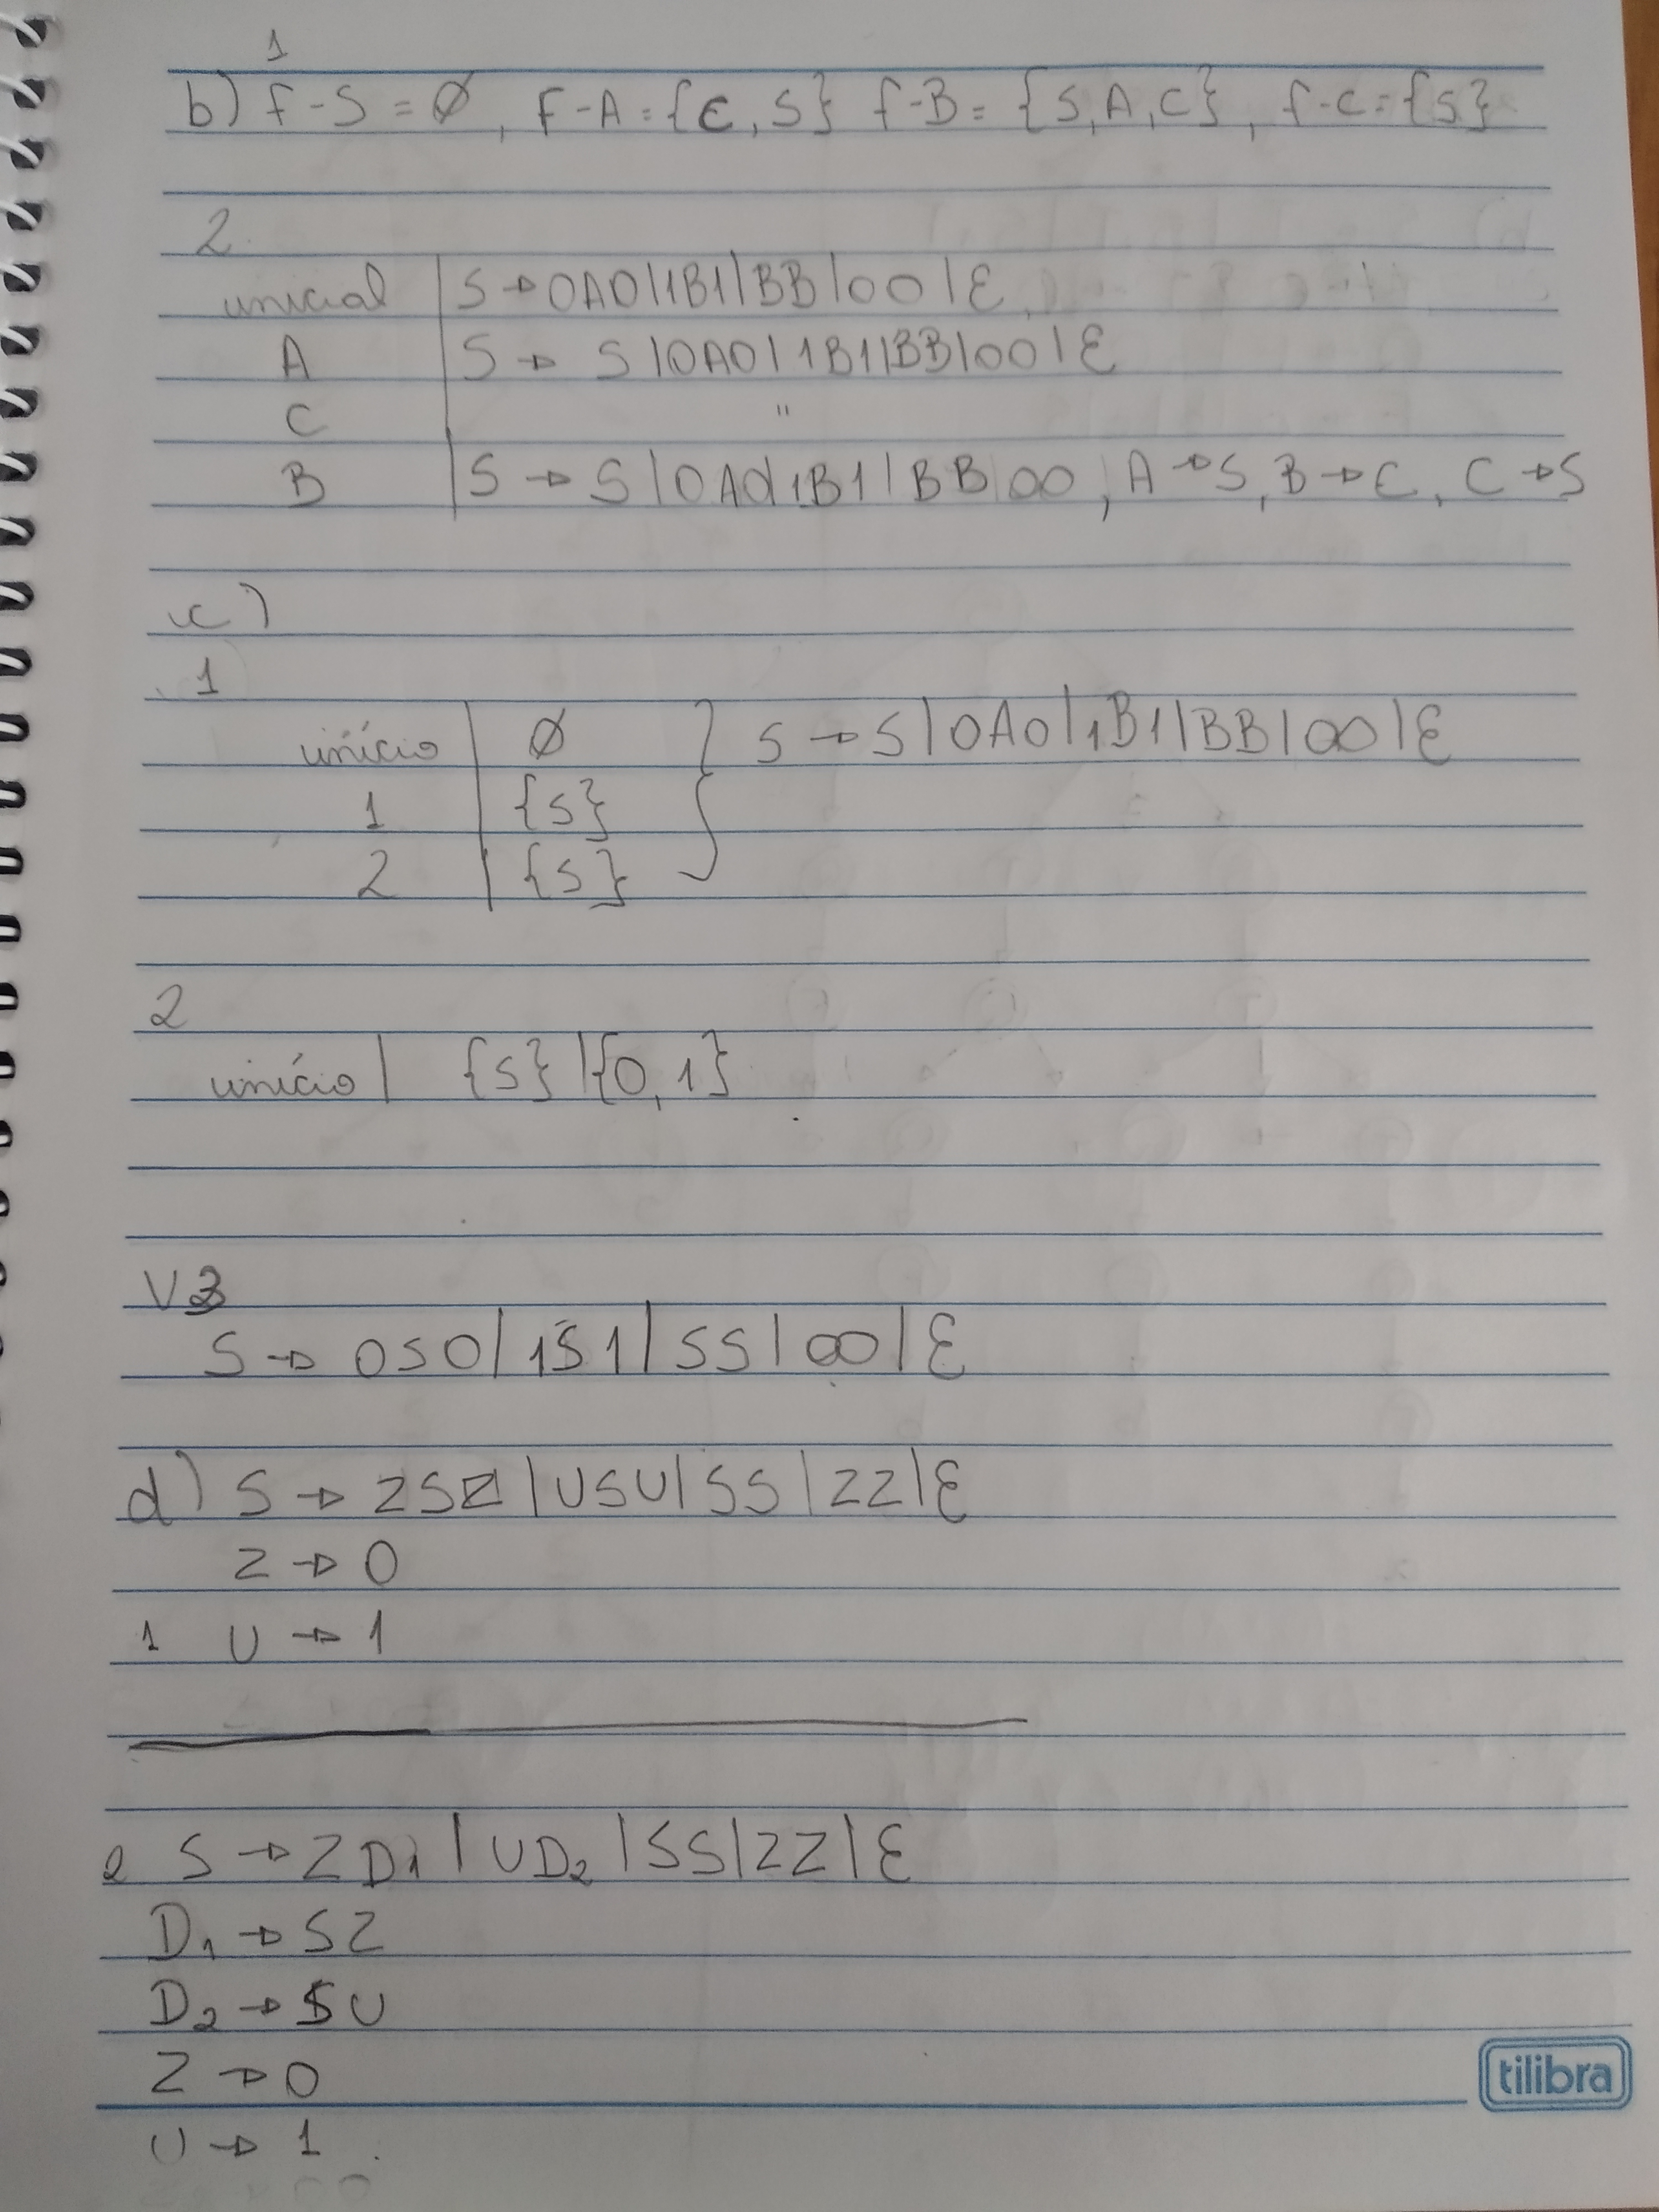 1
b) F-S = Ø, F-A = {C, S} F-B = {S, A, C}, F-C = {S}
2
inicial | S → 0A0|1B1|BB|00|ε
A | S → S|0A0|1B1|BB|00|ε
C | "
B | S → S|0A0|1B1|BB|00, A → S, B → C, C → S
c)
1
início | Ø } S → S|0A0|1B1|BB|00|ε
1 | {S}
2 | {S}
2
início | {S} | {0,1}
V3
S → 0S0|1S1|SS|00|ε
d) S → ZSZ|USU|SS|ZZ|ε
Z → 0
1 U → 1
2 S → ZD₁|UD₂|SS|ZZ|ε
D₁ → SZ
D₂ → SU
Z → 0
U → 1
tilibra